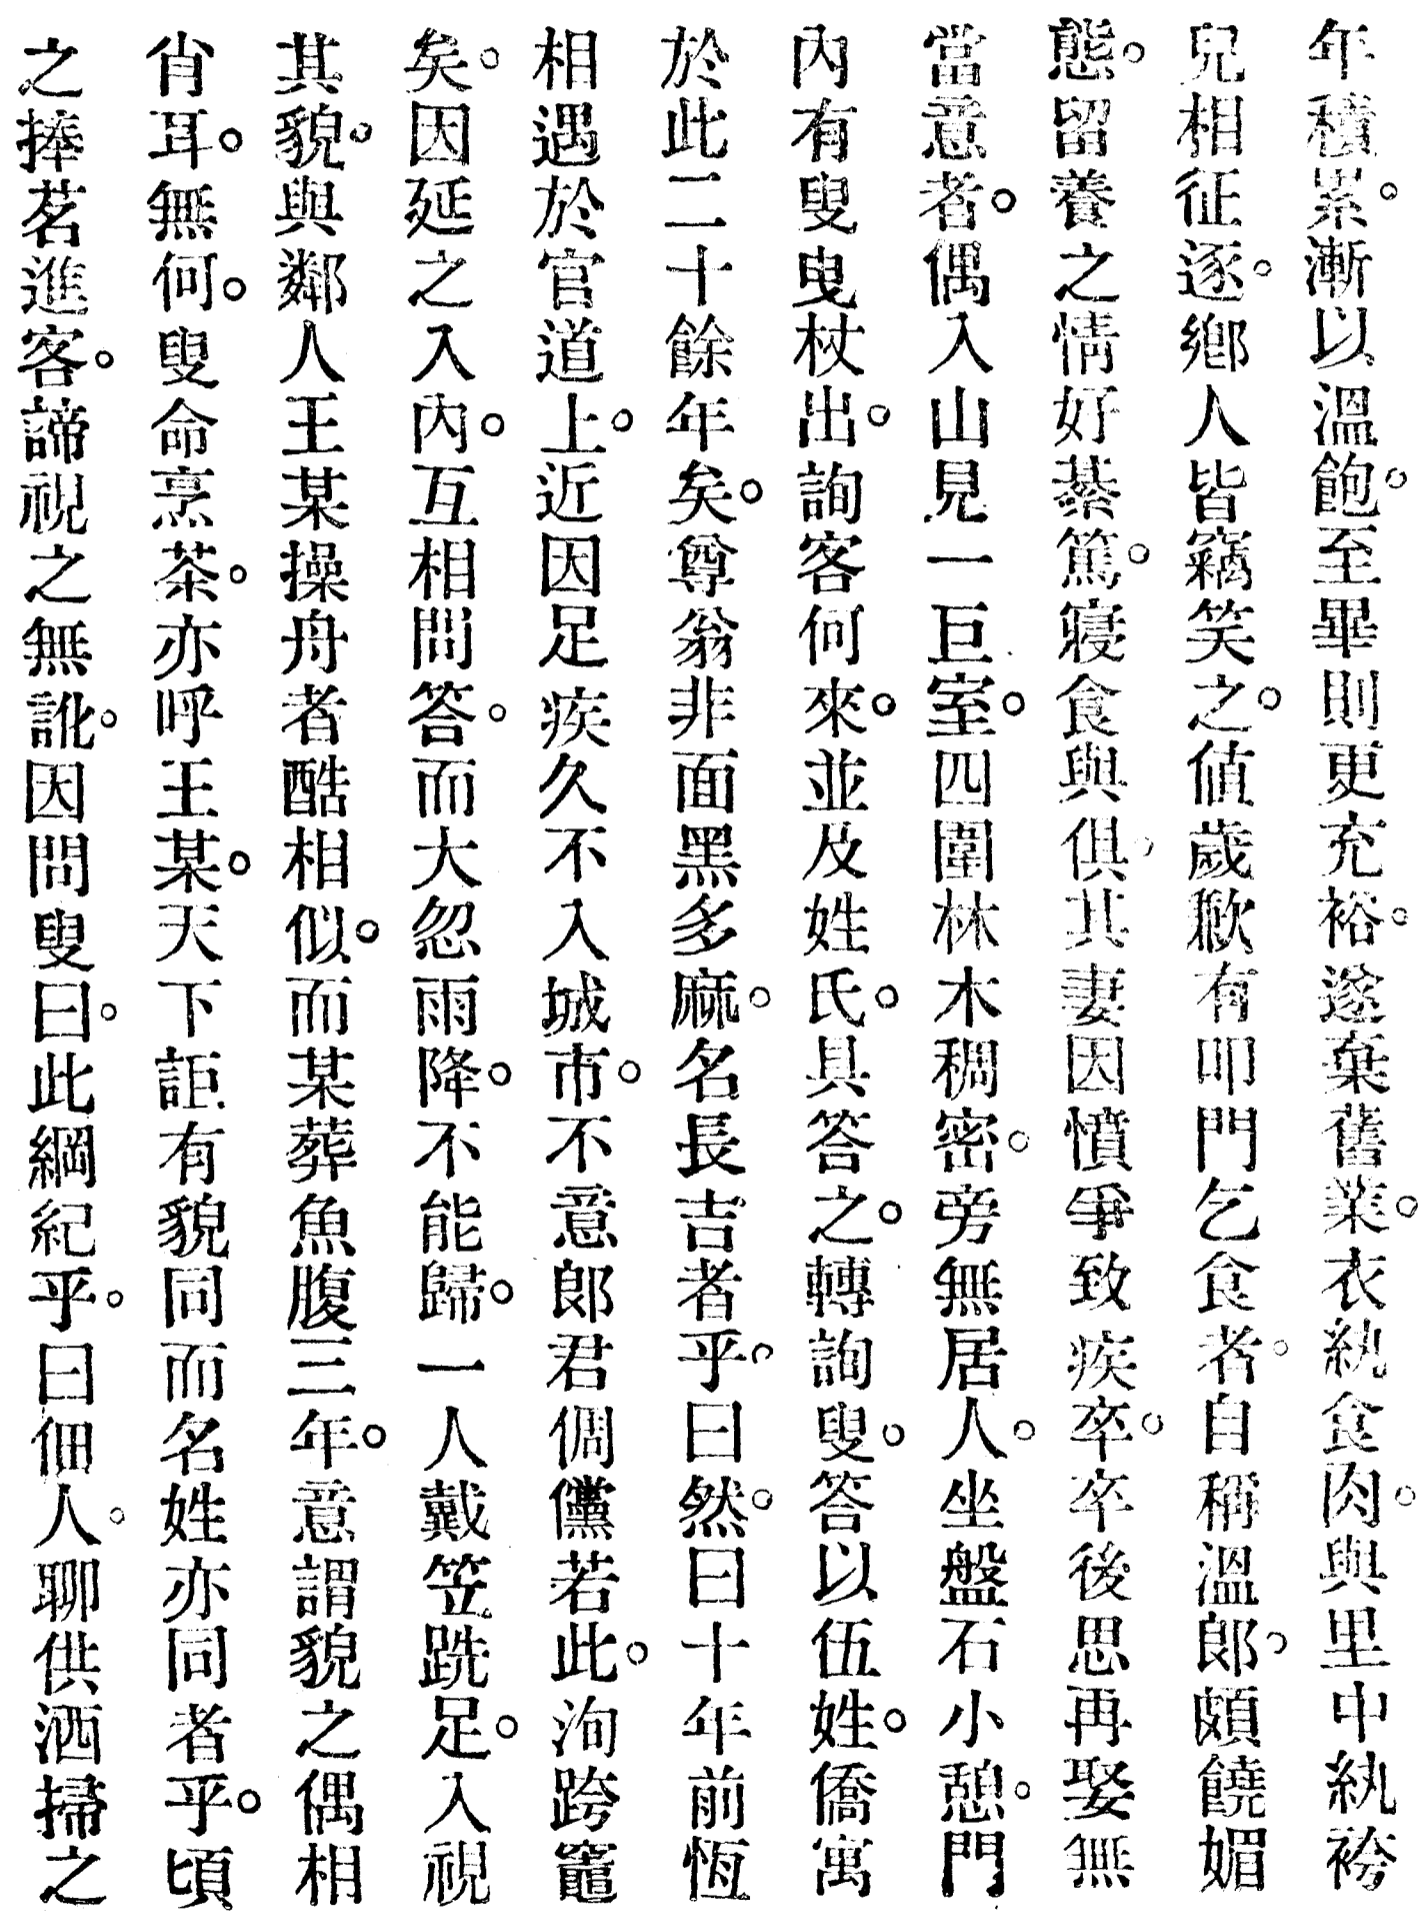 年積累。漸以溫飽。至畢則更充裕。遂棄舊業。衣紈食肉。與里中紈袴
兒相征逐。鄉人皆竊笑之。値歲歉有叩門乞食者。自稱溫郎。頗饒媚
態。留養之情好綦篤。寢食與俱。其妻因憤爭致疾卒。卒後思再娶無
當意者。偶入山見一巨室。四圍林木稠密。旁無居人。坐盤石小憩。門
內有叟曳杖出。詢客何來。並及姓氏。具答之。轉詢叟。答以伍姓。僑寓
於此二十餘年矣。尊翁非面黑多麻。名長吉者乎。曰然。曰十年前恆
相遇於官道上。近因足疾久不入城市。不意郎君倜儻若此。洵跨竈
矣。因延之入內。互相問答。而大忽雨降。不能歸。一人戴笠跣足。入視
其貌。與鄰人王某操舟者酷相似。而某葬魚腹三年。意謂貌之偶相
肖耳。無何。叟命烹茶。亦呼王某。天下詎有貌同而名姓亦同者乎。頃
之捧茗進客。諦視之無訛。因問叟曰。此綱紀乎。曰佃人。聊供洒掃之